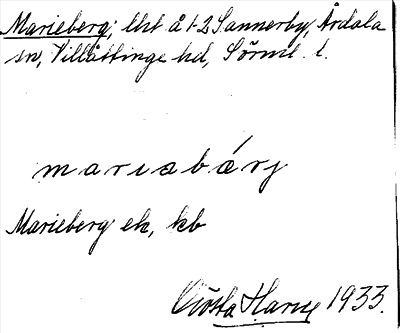 Marieberg; lht å 1-2 Sannerby, Årdala
sn, Villåttinge hd, Sörml. l.
mariabárj
Marieberg ek, kb
Gösta Harne 1933.